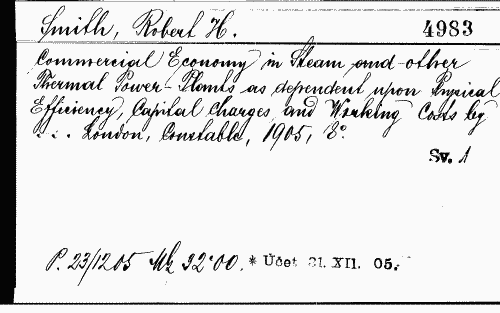 Smith, Robert H. 4983
Commercial Economy in Steam and other
Thermal Power-Plants as dependent upon Physical
Efficiency, Capital Charges and Working Costs by
... London, Constable, 1905, 8°.
Sv. 1
P. 23/12 05 Mk 22·00. * Účet 21. XII. 05.